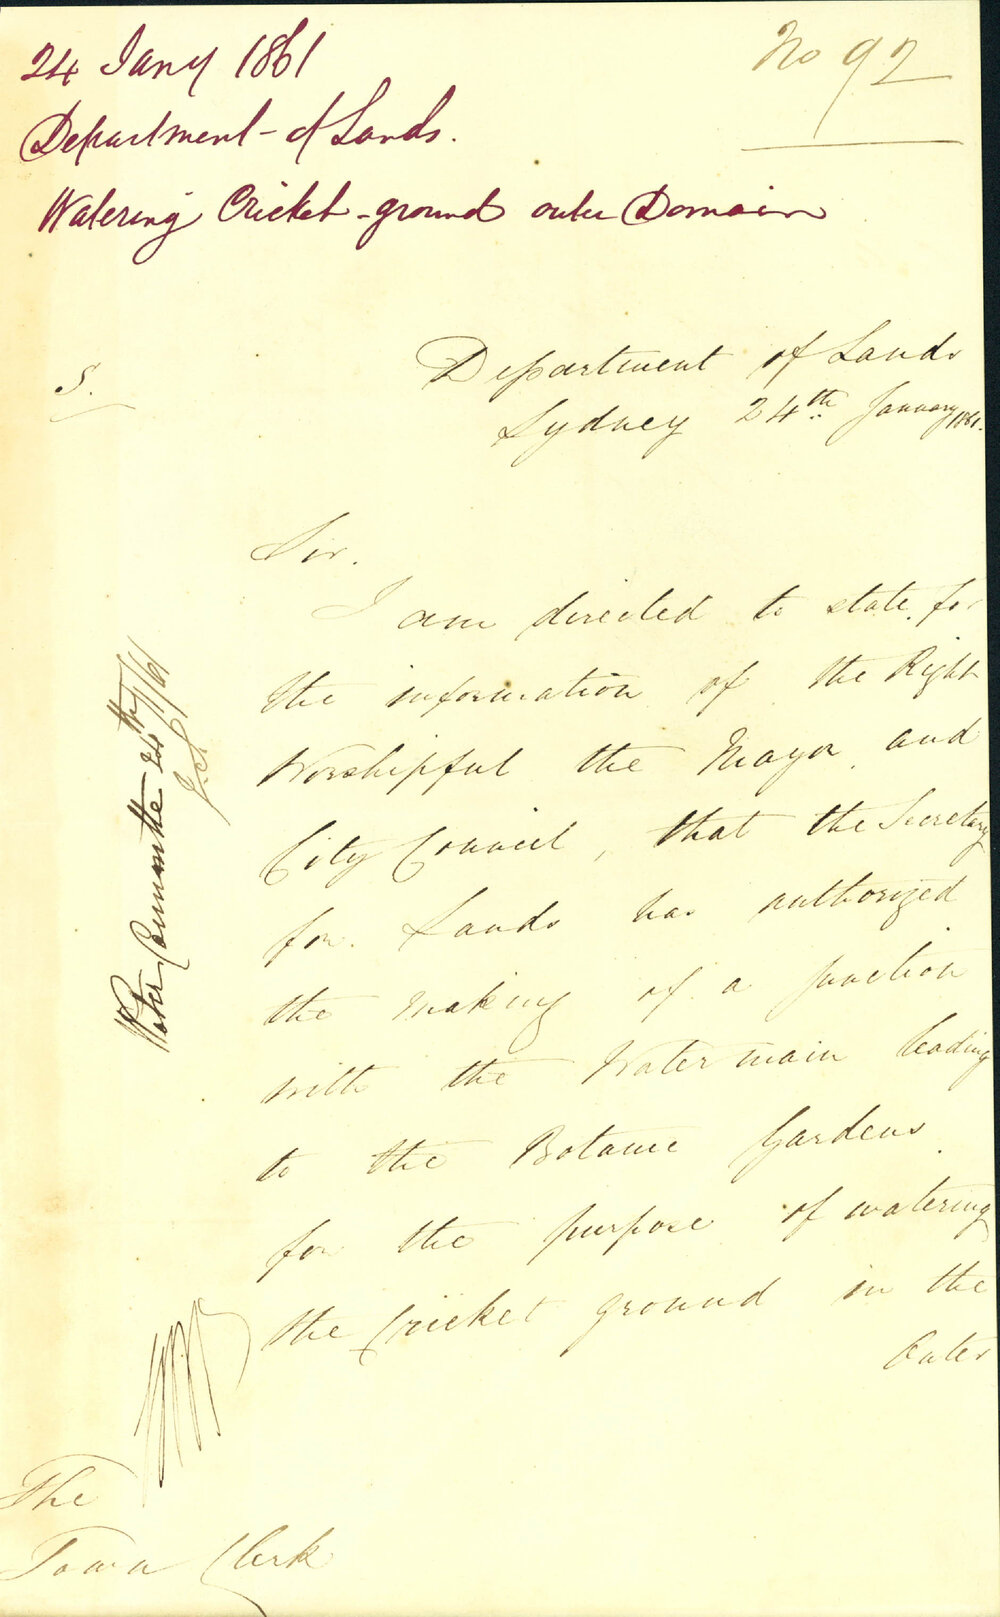 24 Jany 1861
No 92
Department of Lands.
Watering Cricket-ground outer Domain
Department of Lands
Sydney 24th January 1861.
S.
Sir.
I am directed to state, for
the information of the Right
Worshipful the Mayor and
City Council, that the Secretary
for Lands has authorized
the making of a junction
with the Water main leading
to the Botanic Gardens
for the purpose of watering
the Cricket ground in the
Outer
Water Committee 24th/1/61
The
Town Clerk